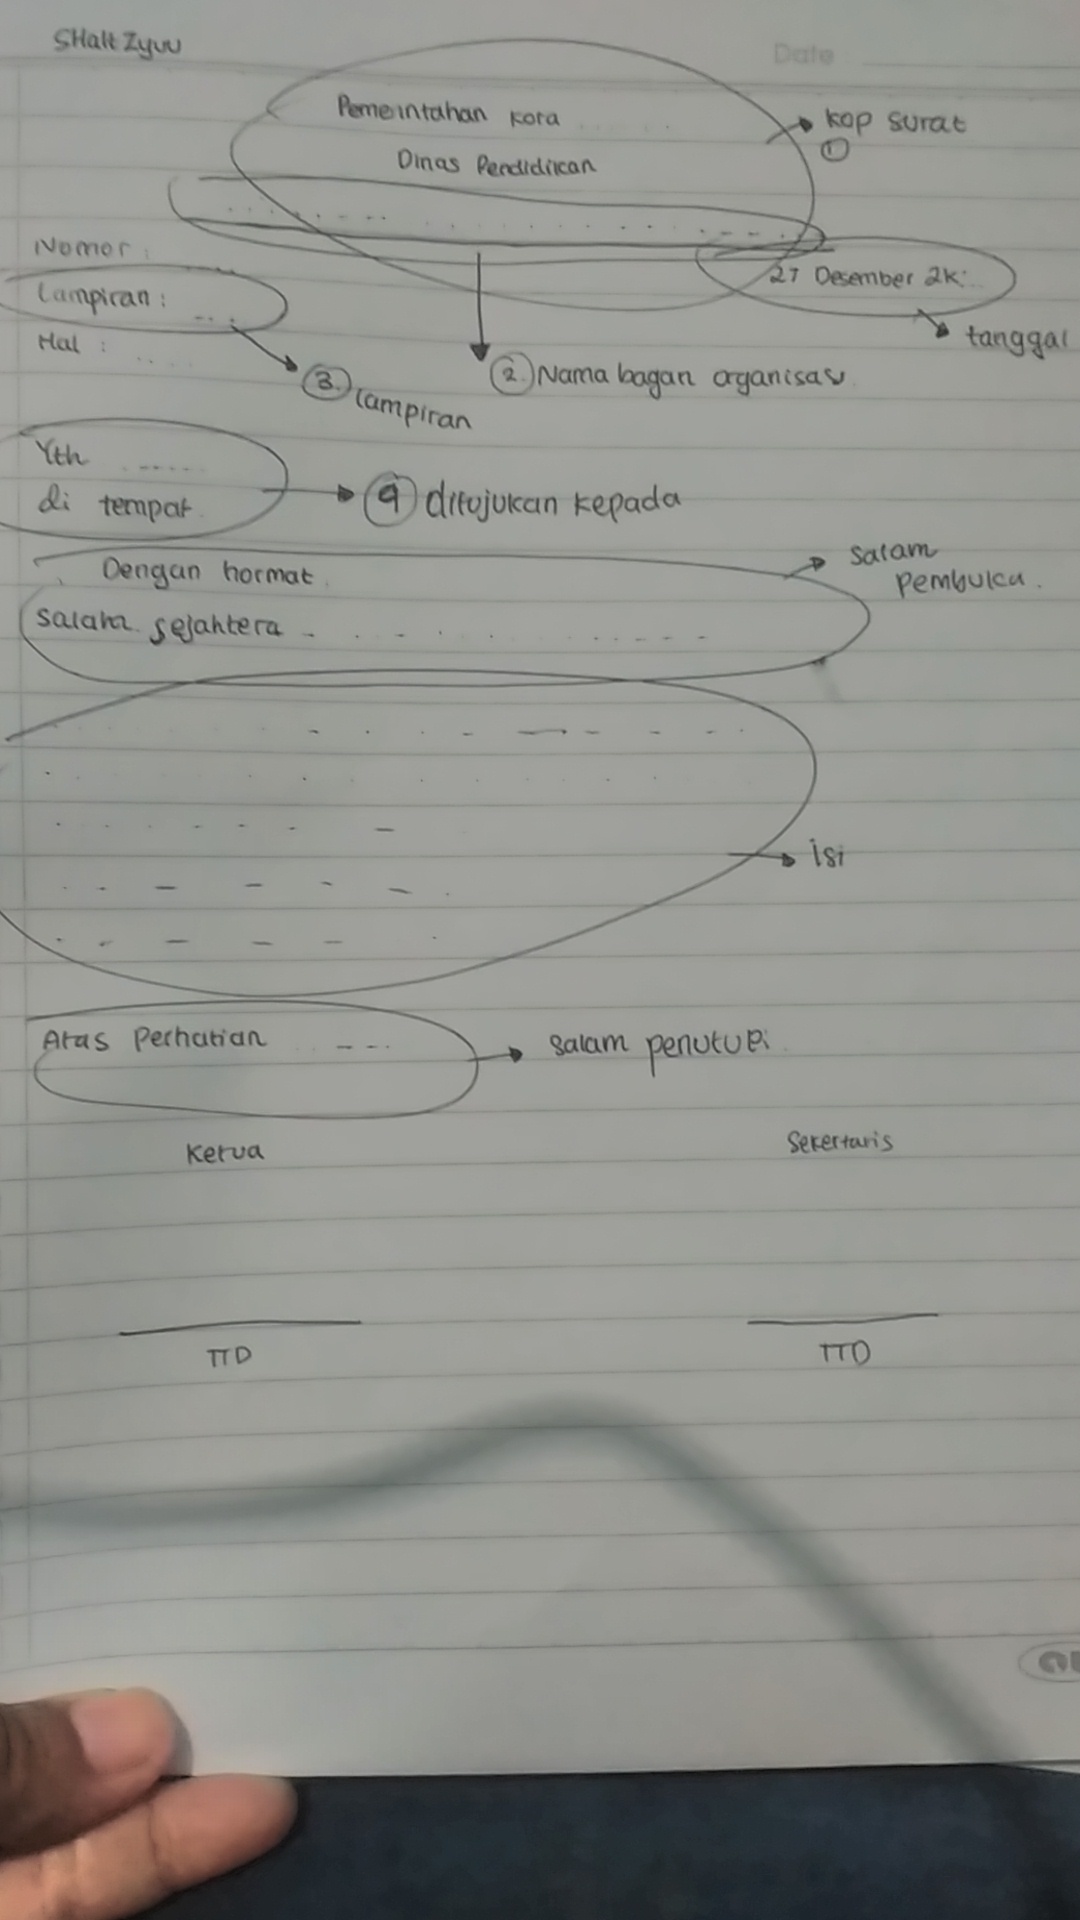 SHalt Zyuu
Date
Pemerintahan Kota .....
Dinas Pendidikan
kop surat
①
Nomor :
27 Desember 2k:
Lampiran : ...
tanggal
Hal : ....
② Nama bagan organisasi
③ Lampiran
Yth .....
di tempat
④ ditujukan kepada
Dengan hormat
salam pembuka.
Salam sejahtera - . . . . . . . . . . .
isi
Atas Perhatian ....
Salam penutup
Ketua
Sekertaris
TTD
TTD